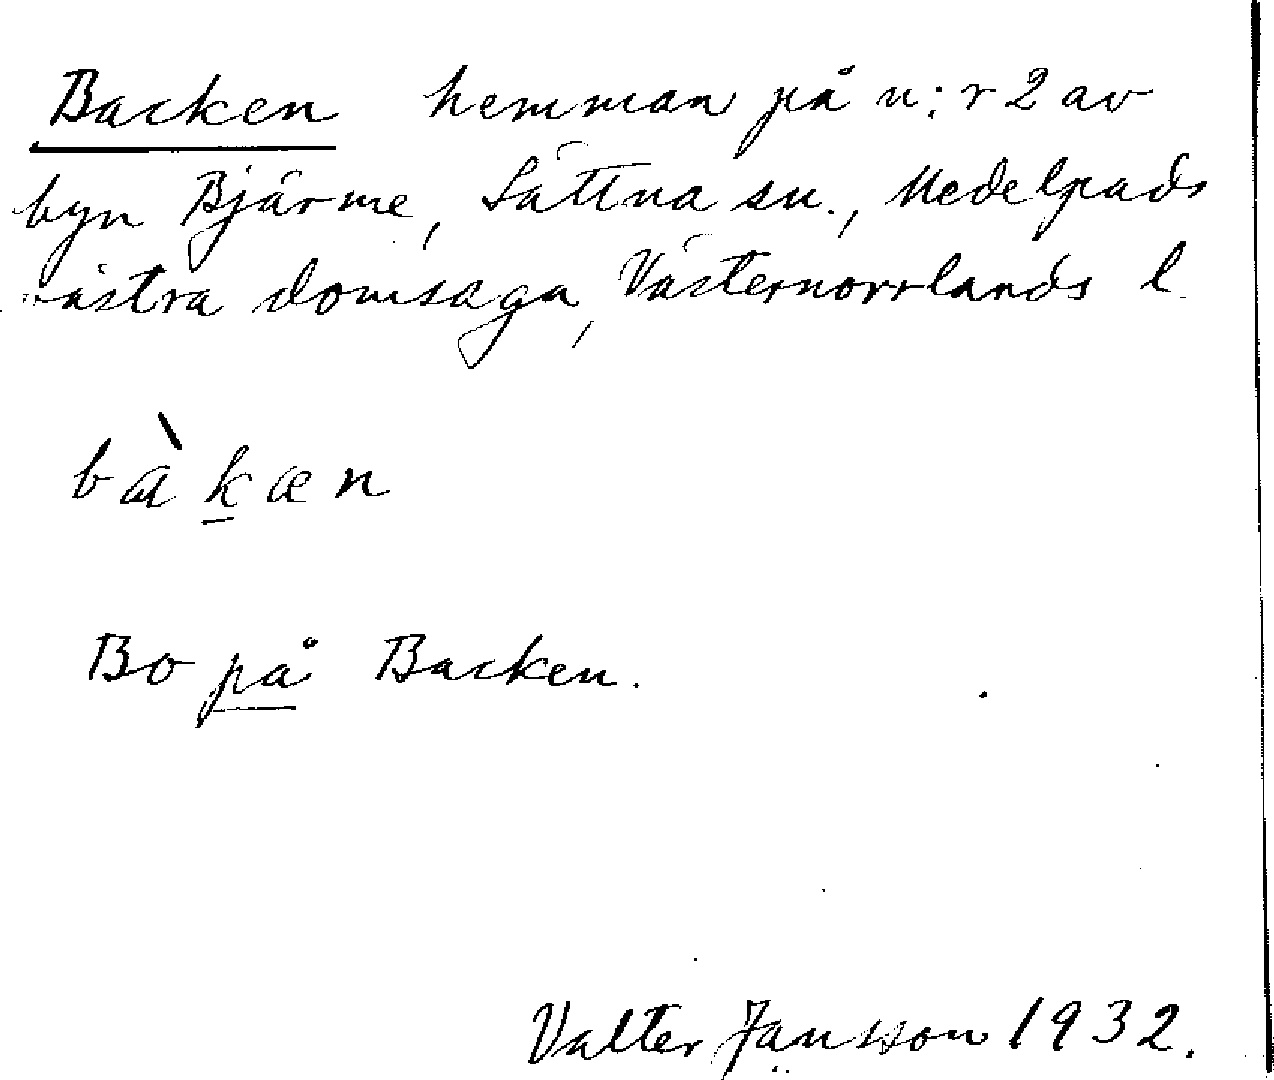 Backen hemman på n:r 2 av
byn Bjärme, Sättna sn., Medelpads
västra domsaga, Västernorrlands l.
bàkæn
Bo på Backen.
Valter Jansson 1932.